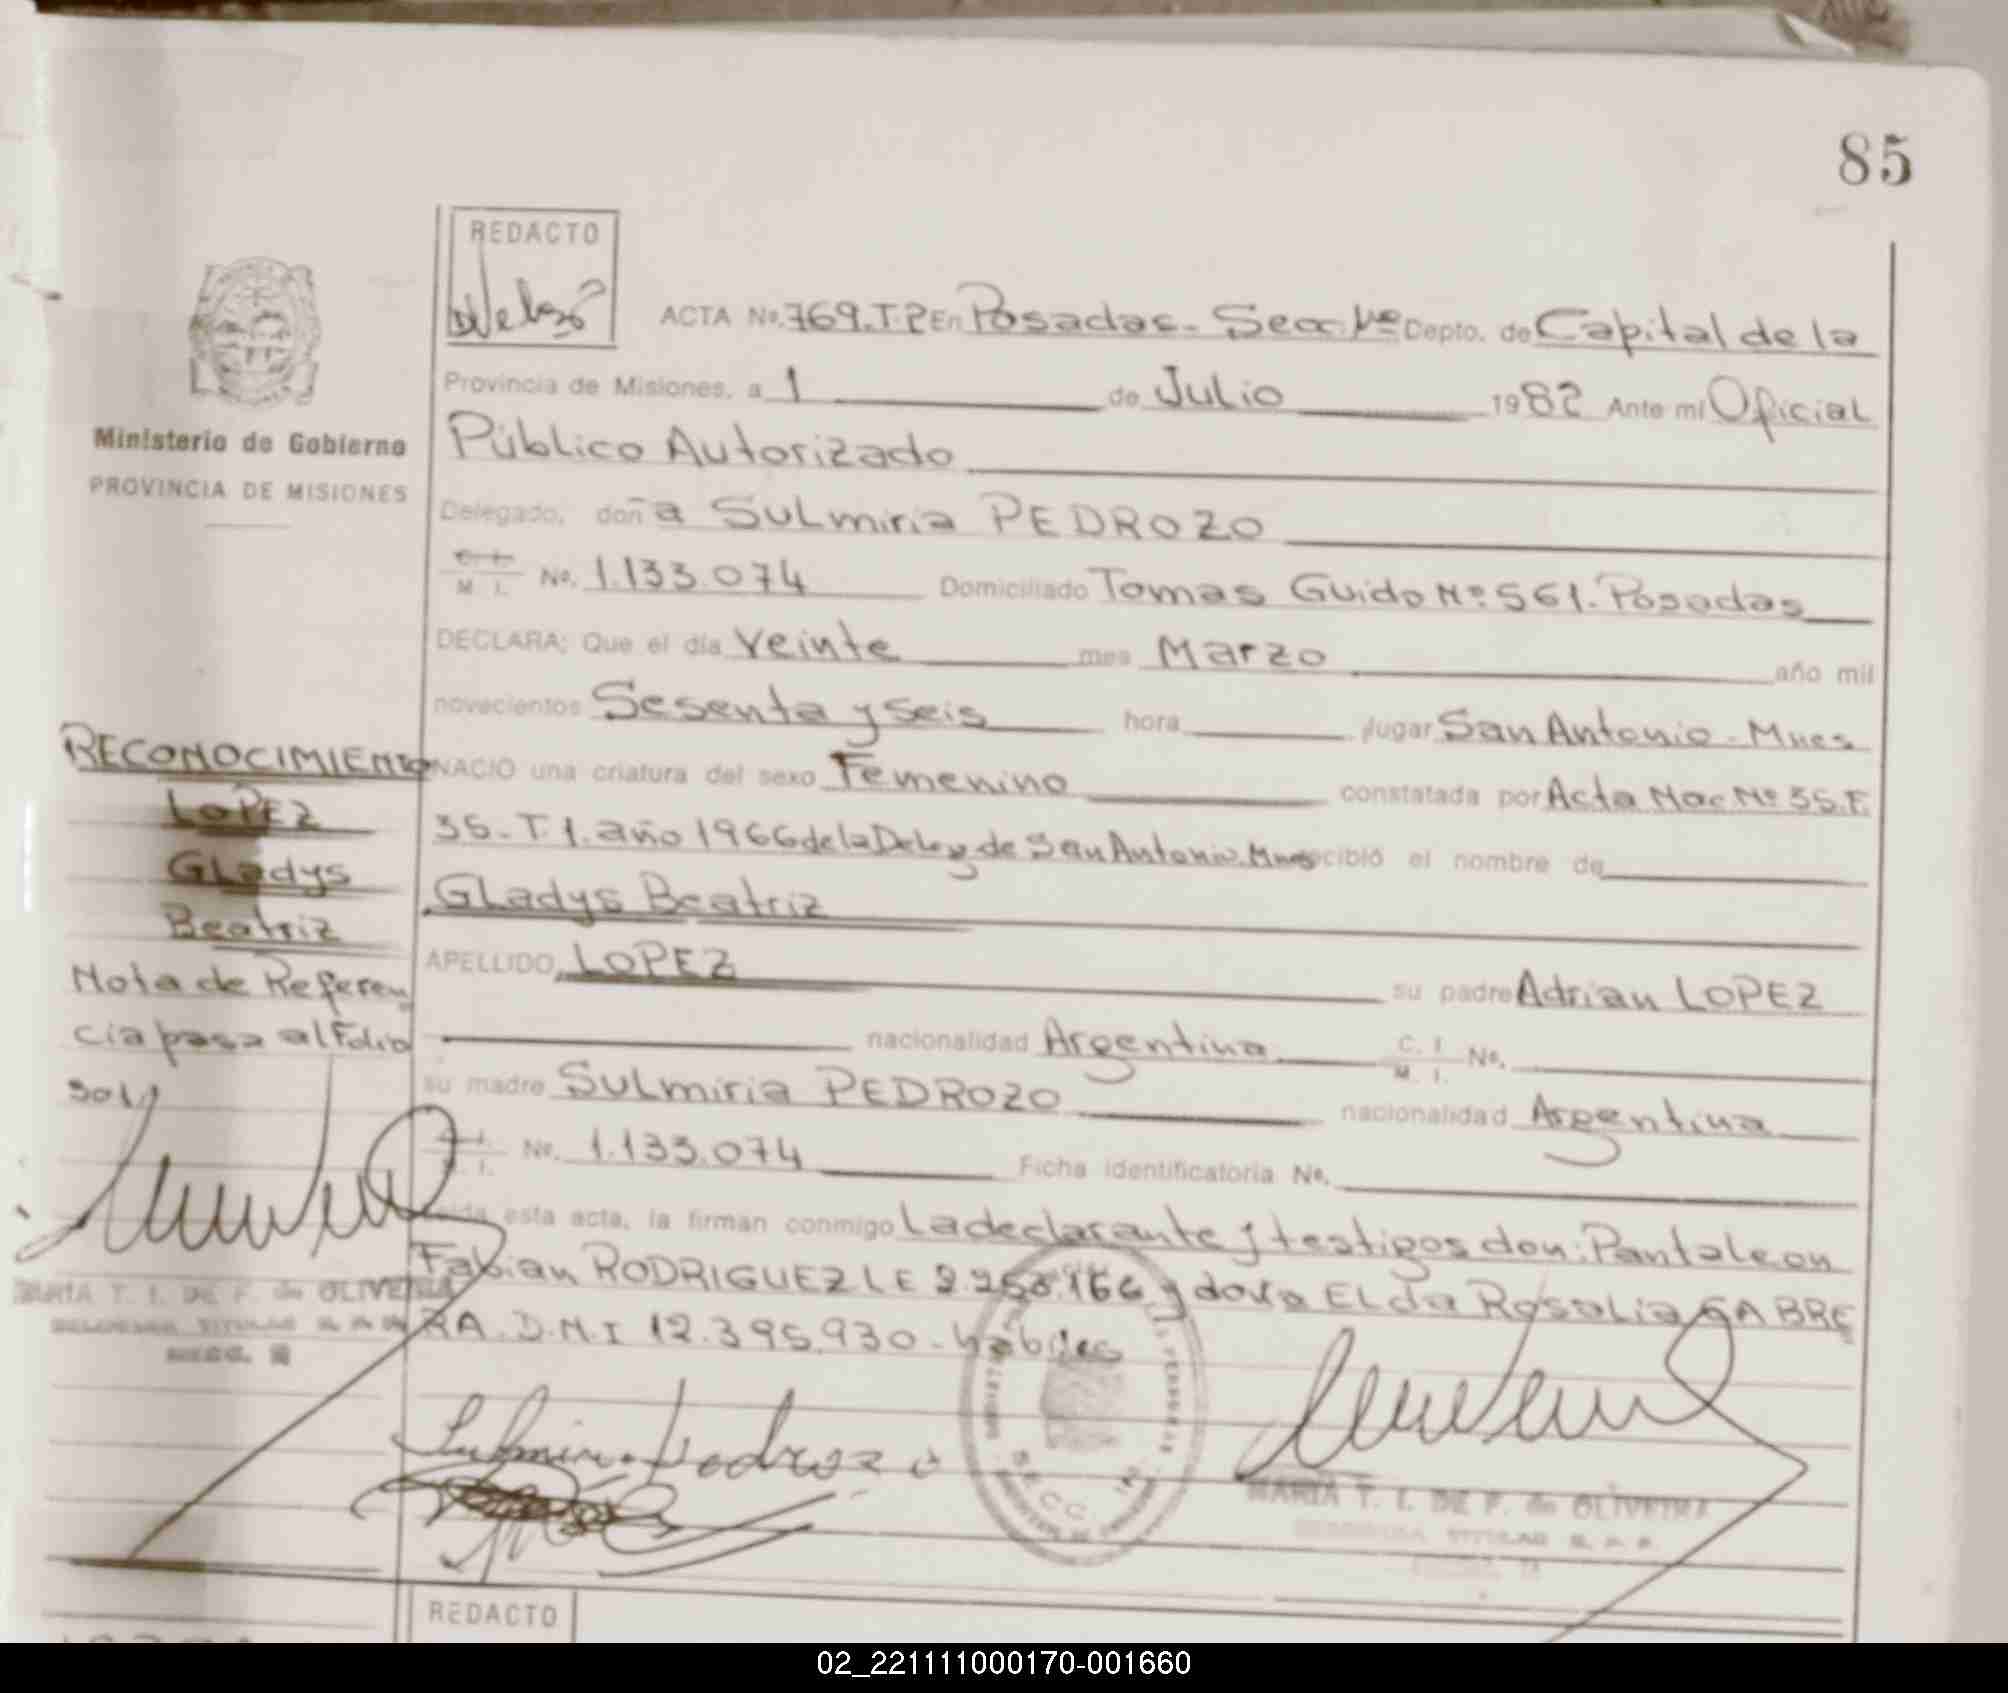 85
REDACTO
ACTA No. 769.T2 En Posadas - Secc. 1ra Depto. de Capital de la
Provincia de Misiones, a 1 de Julio 1982 Ante mi Oficial
Público Autorizado
Delegado, doña Sulmiria PEDROZO
C. I.
M. I. No. 1.133.074 Domiciliado Tomas Guido Nº 561. Posadas
DECLARA: Que el día veinte mes Marzo año mil
novecientos Sesenta y seis hora lugar San Antonio - Mnes
NACIO una criatura del sexo Femenino constatada por Acta Nac Nº 35. F.
35 - T. 1. año 1966 de la Deleg de San Antonio. Mnes cibió el nombre de
Gladys Beatriz
APELLIDO LOPEZ su padre Adrian LOPEZ
nacionalidad Argentina C. I.
M. I. No.
su madre Sulmiria PEDROZO nacionalidad Argentina
No. 1.133.074 Ficha identificatoria No.
esta acta, la firman conmigo La declarante y testigos don: Pantaleon
Fabian RODRIGUEZ LE y doña Elda Rosalia CABRE
RA. D.N.I 12.395.930 - habiles
Sulmiria Pedrozo
MARIA T. I. DE F. de OLIVEIRA
Ministerio de Gobierno
PROVINCIA DE MISIONES
RECONOCIMIENTO
LOPEZ
Gladys
Beatriz
Nota de Referen
cia pasa al Folio
301
MARIA T. I. DE F. de OLIVEIRA
SECC.
REDACTO
02_221111000170-001660